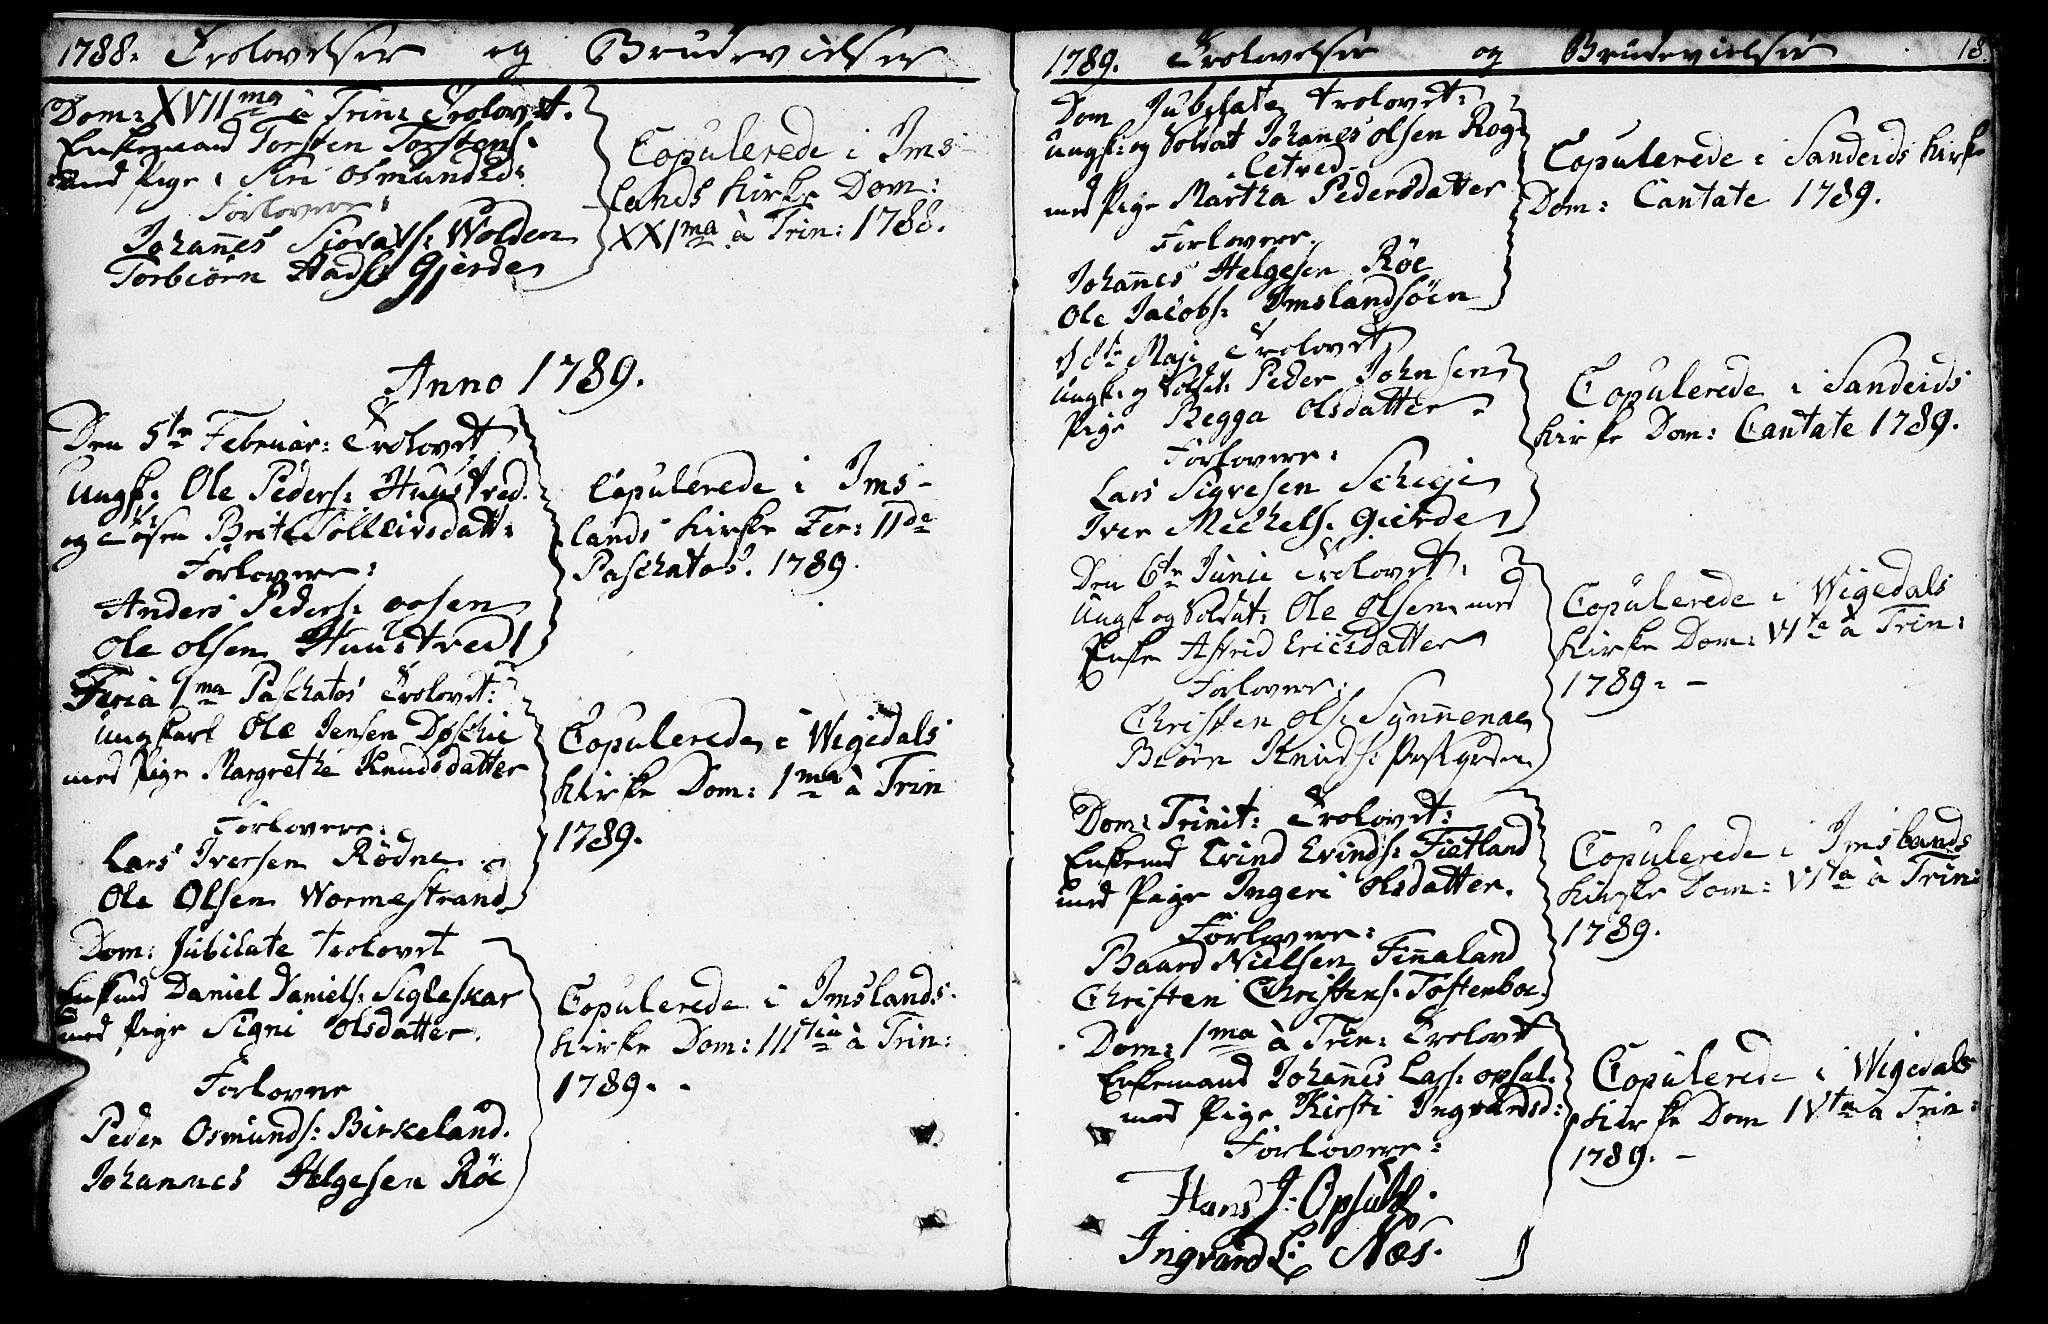 1788. Trolovelser og Brudevielser
Dom: XVIIma à Trin: Trolovet.
Enkemand Torsten Torstens:
med Pige: Siri Osmundsd:
Forlovere:
Johannes Siovats: Wolden
Torbiörn Aads: Gjerde
Copulerede i Ims-
lands Kirke Dom:
XXIma à Trin: 1788.
Anno 1789.
Den 5te Februar: Trolovet
Ungk. Ole Peders: Huustved.
og Tøsen Brite Tolleivsdatt:
Forlovere:
Anders Peders:
Ole Olsen Huustved
Copulerede i Ims-
lands Kirke Fer: IIde
Paschatos. 1789.
Feria 1ma Paschatos Trolovet:
Ungkarl Ole Jensen Døschie
med Pige Margrethe Knudsdatter
Forlovere:
Lars Iversen Rödne
Ole Olsen Wormestrand
Copulerede i Wigedals
Kirke Dom: 1ma à Trin
1789.
Dom: Jubilate trolovet
Enkmd Daniel Daniels: Sigleskar
med Pige Signi Olsdatter.
Forlovere
Peder Osmunds: Birkeland.
Johannes Helgesen Röe
Copulerede i Imslands.
Kirke Dom: IIItia à Trin:
1789. -
1789. Trolovelser og Brudevielser 18.
Dom Jubilate trolovet:
Ungk: og Soldat Johanes Olsen Rog-
letved
med Pige Martha Pedersdatter
Forlovere.
Johannes Helgesen Röe
Ole Jacobs: Imslandsöen
Copulerede i Sandeids Kirke
Dom: Cantate 1789.
d 8te Maji Trolovet
Ungk: og Soldat: Peder Johnsen
Pige Begga Olsdatter.
Forlovere:
Lars Sigvesen Scheje
Iver Michels: Gierde
Copulerede i Sandeids
Kirke Dom: Cantate 1789.
Den 6te Junii Trolovet.
Ungk og Soldat: Ole Olsen med
Enke Astrid Ericsdatter
Forlovere:
Christen Ols: Synnenaae
Biörn Knuds: Prestgarden
Copulerede i Wigedals
Kirke Dom: VIta à Trin:
1789. -
Dom: Trinit: Trolovet:
Enkemd Evind Evinds: Fietland
med Pige Ingeri Olsdatter.
Forlovere:
Baard Nielsen Finnaland
Christen Christens: Tostenboe
Copulerede i Imslands
Kirke Dom: VIta à Trin:
1789.
Dom: 1ma à Trin: Trolovet
Enkemand Johannes Lars: Opsal.
med Pige Kirsti Ingvardsd:
Forlovere:
Hans J: Opsahl.
Ingvard L: Næs.
Copulerede i Wigedals
Kirke Dom IVta à Trin:
1789. -